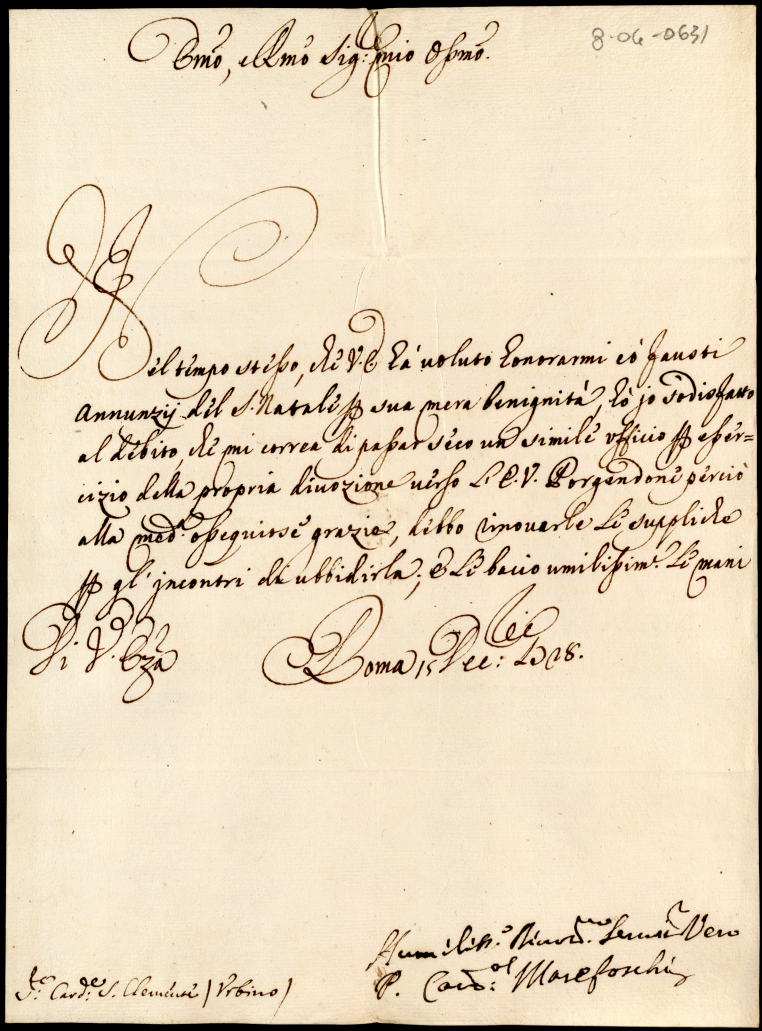 8-06-0631
Emo, e Rmo Sig: mio Ossmo.
Nel tempo stesso, che V.E. hà voluto honorarmi cò fausti
Annunzij del S. Natale p sua mera benignità, hò jo sodisfatto
al debito, che mi correa di passar seco un simile ufficio p esser=
cizio della propria divozione verso l'E.V. Porgendone perciò
alla meda. ossequiose grazie, debbo rinovarle le suppliche
p gl'jncontri di ubbidirla; e Le bacio umilissime. le mani
Di V. Eza Roma 15 Dec:
Humiliss.o Servitr Vero
P. Card:al Marefoschi
Sr. Card:e S. Clemente (Urbino)